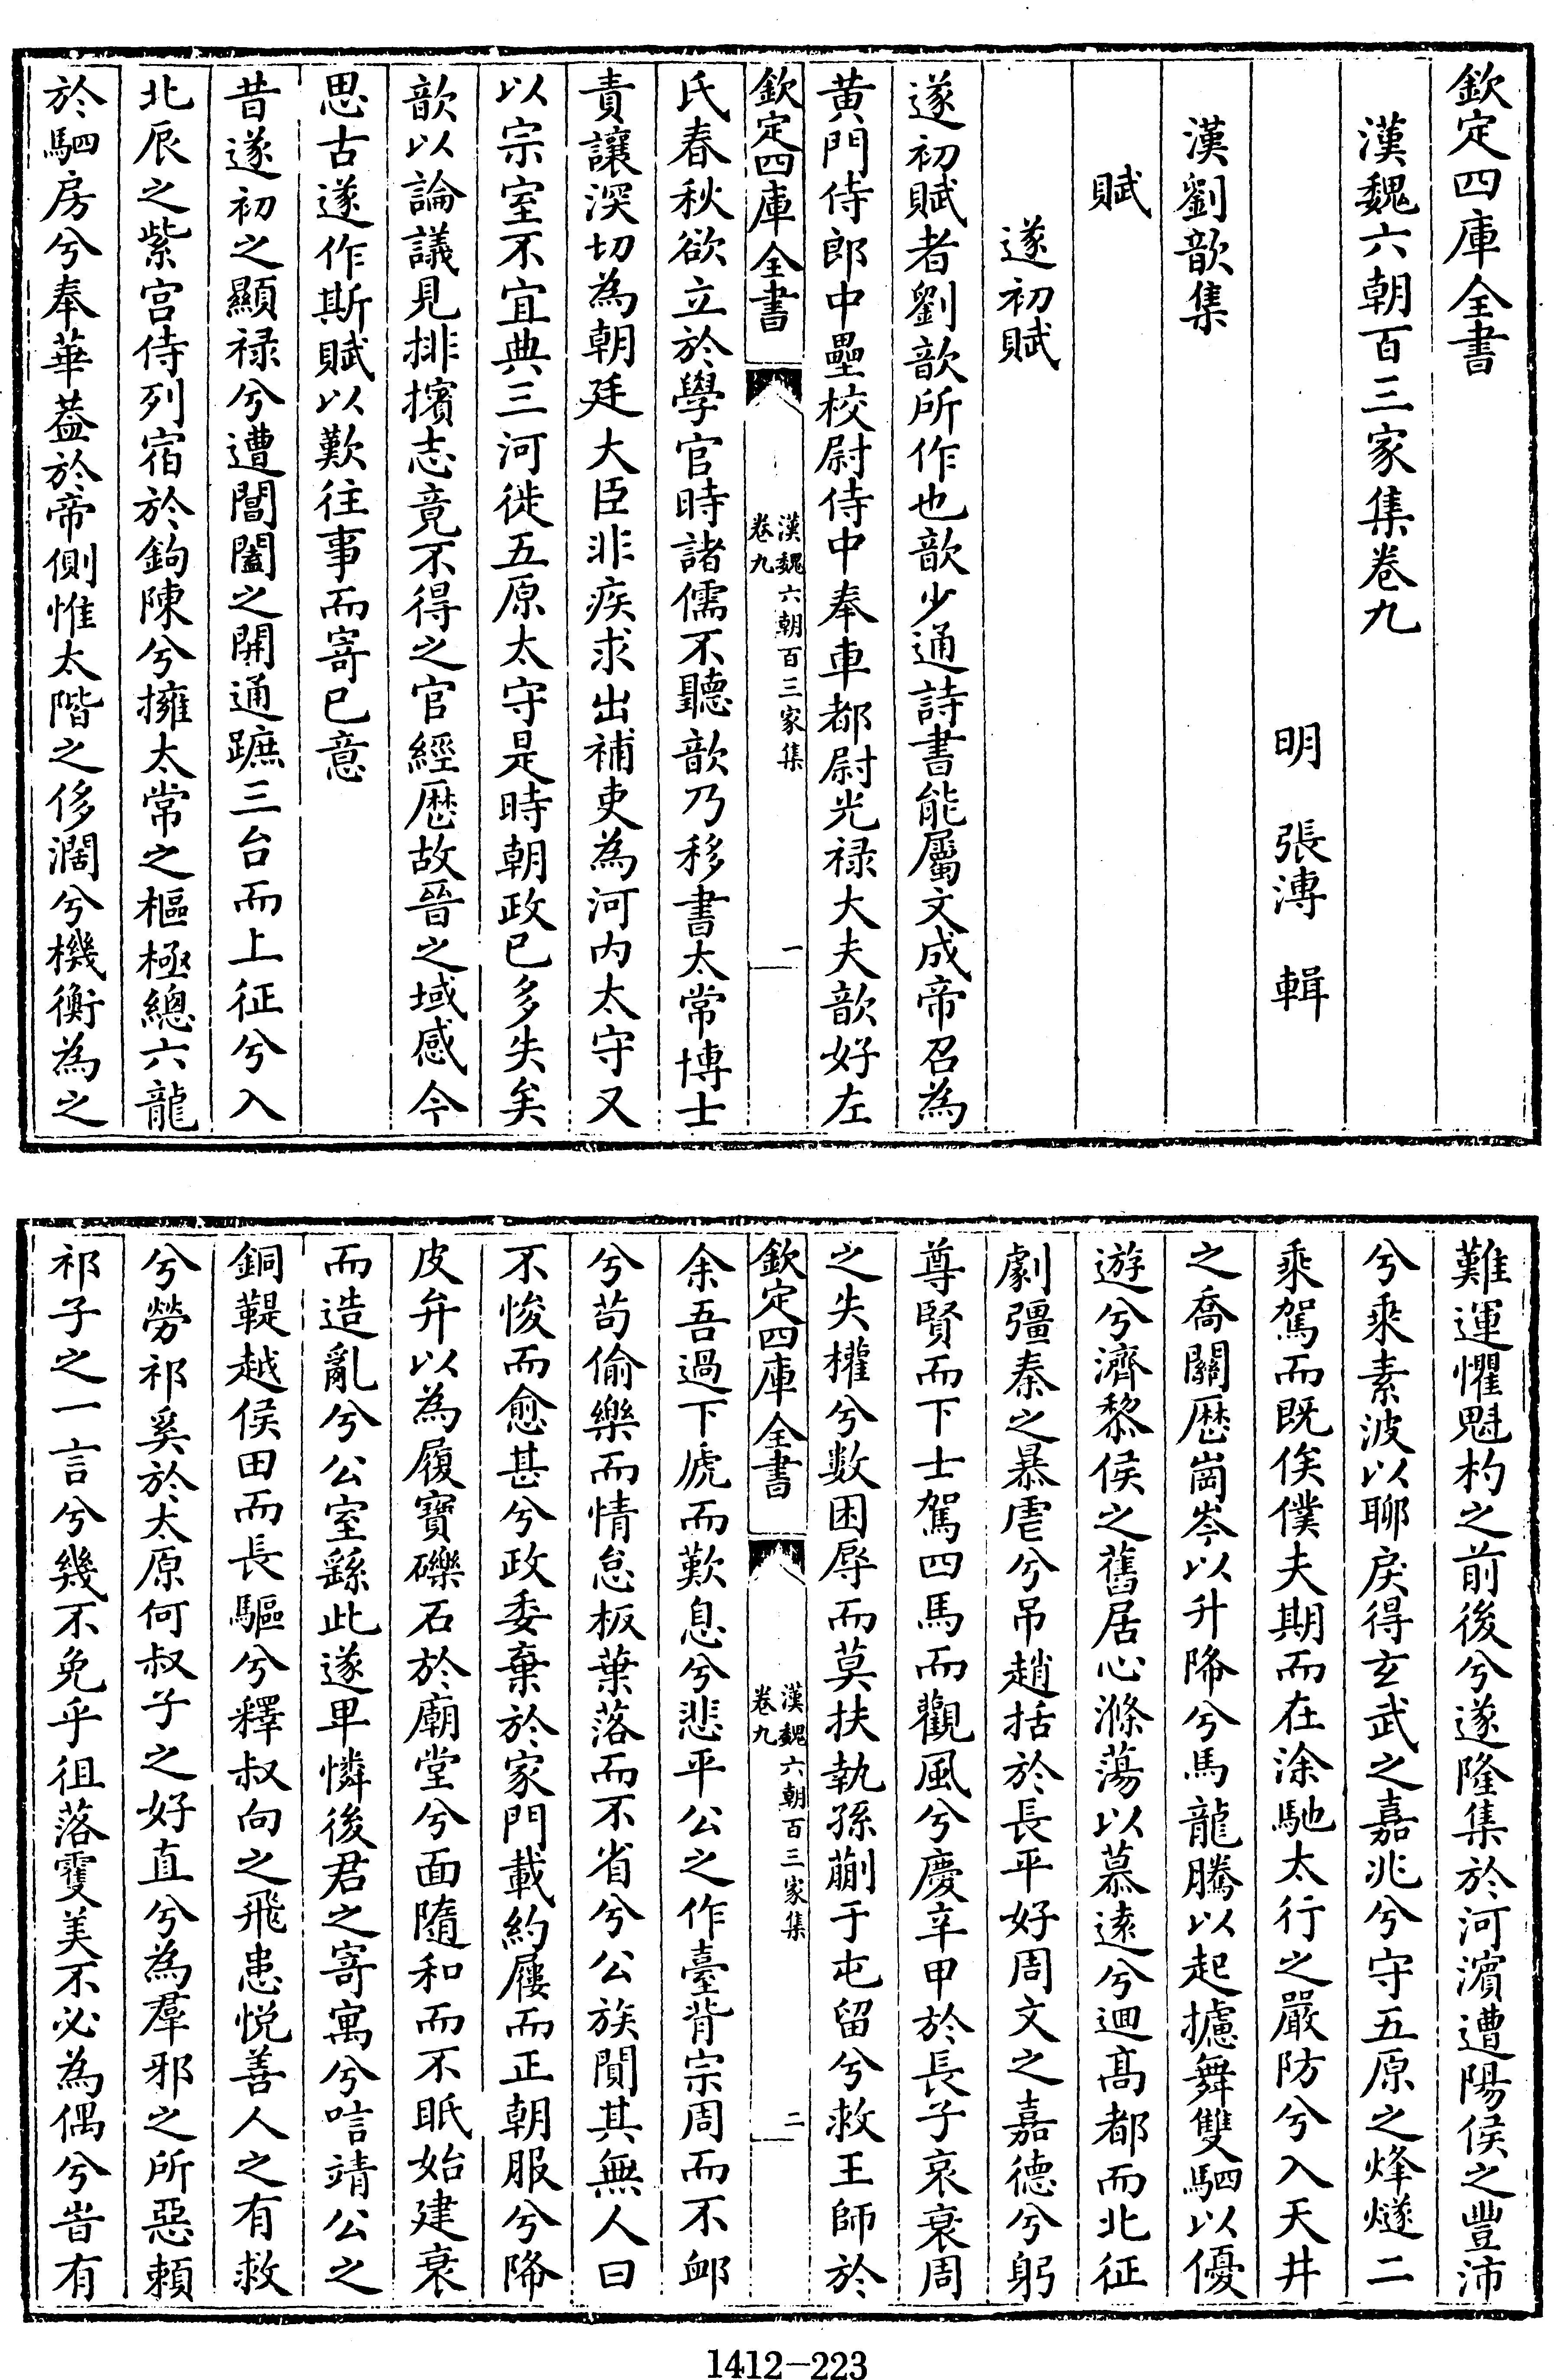 欽定四庫全書
漢魏六朝百三家集卷九
明 張溥 輯
漢劉歆集
賦
遂初賦
遂初賦者劉歆所作也歆少通詩書能屬文成帝召為
黄門侍郎中壘校尉侍中奉車都尉光禄大夫歆好左
欽定四庫全書
漢魏六朝百三家集
卷九
一
氏春秋欲立於學官時諸儒不聽歆乃移書太常博士
責讓深切為朝廷大臣非疾求出補吏為河内太守又
以宗室不宜典三河徙五原太守是時朝政已多失矣
歆以論議見排擯志竟不得之官經厯故晉之域感今
思古遂作斯賦以歎往事而寄已意
昔遂初之顯禄兮遭閶闔之開通蹠三台而上征兮入
北辰之紫宫侍列宿於鉤陳兮擁太常之樞極總六龍
於駟房兮奉華葢於帝側惟太階之侈濶兮機衡為之
難運懼魁杓之前後兮遂隆集於河濱遭陽侯之豐沛
兮乘素波以聊戾得玄武之嘉兆兮守五原之烽燧二
乘駕而既俟僕夫期而在涂馳太行之嚴防兮入天井
之喬關厯崗岑以升降兮馬龍騰以起攄舞雙駟以優
遊兮濟黎侯之舊居心滌蕩以慕遠兮迴髙都而北征
劇彊秦之暴虐兮吊趙括於長平好周文之嘉德兮躬
尊賢而下士駕四馬而觀風兮慶辛甲於長子哀衰周
之失權兮數困辱而莫扶執孫蒯于屯留兮救王師於
欽定四庫全書
漢魏六朝百三家集
卷九
二
余吾過下虒而歎息兮悲平公之作臺背宗周而不䘏
兮苟偷樂而惰怠板葉落而不省兮公族閴其無人曰
不悛而愈甚兮政委棄於家門載約屨而正朝服兮降
皮弁以為履寶礫石於廟堂兮面隨和而不眂始建衰
而造亂兮公室繇此遂卑憐後君之寄寓兮唁靖公之
銅鞮越侯田而長驅兮釋叔向之飛患悦善人之有救
兮勞祁奚於太原何叔子之好直兮為羣邪之所惡賴
祁子之一言兮幾不免乎徂落䨥美不必為偶兮旹有
1412-223